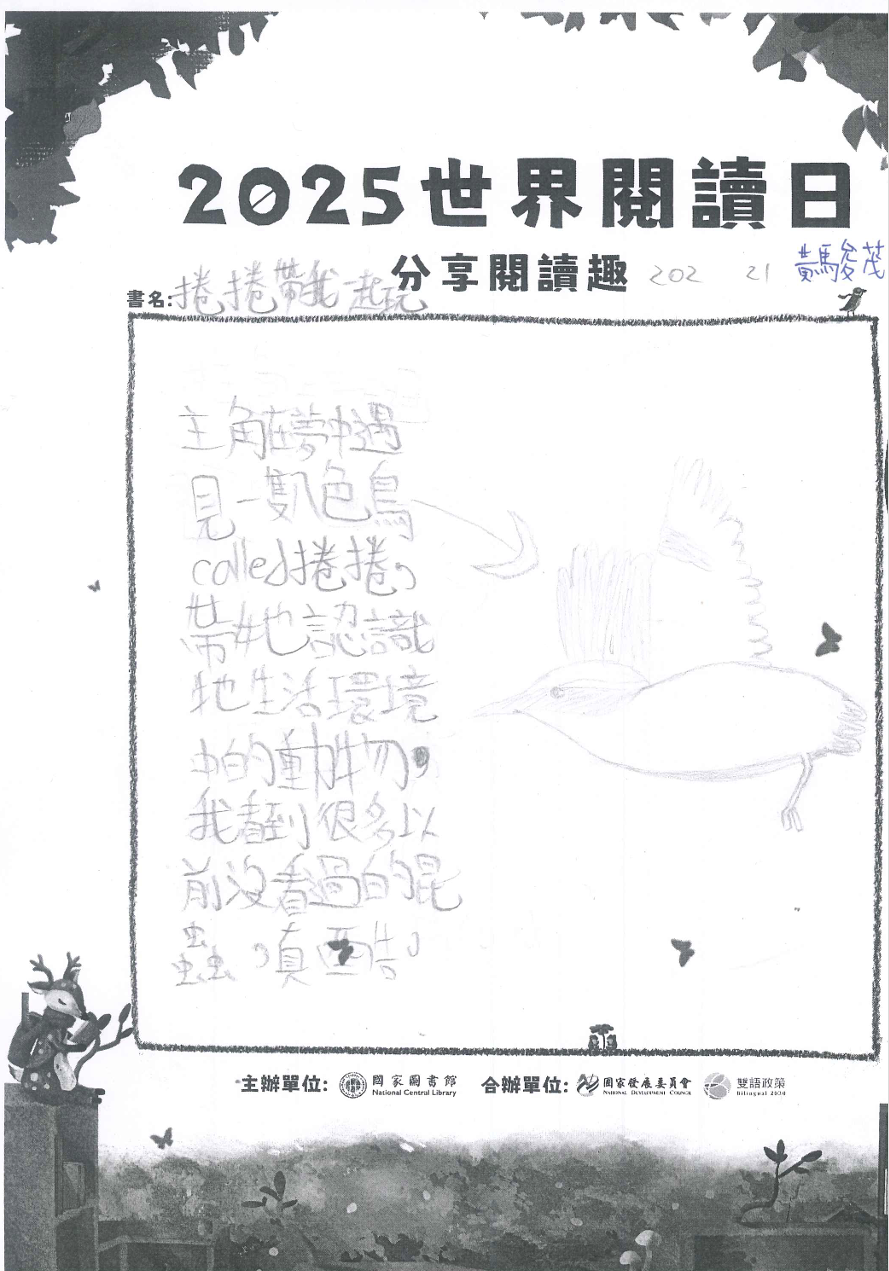 2025世界閱讀日
分享閱讀趣 202 21 黃駿茂
書名:捲捲帶我一起玩
主角在夢中遇
見一隻八色鳥
called捲捲,
帶她認識
牠生活環境
中的動物,
我看到很多以
前沒看過的昆
蟲,真酷。
主辦單位: 國家圖書館 合辦單位: 國家發展委員會 雙語政策
National Central Library NATIONAL DEVELOPMENT COUNCIL bilingual 2030